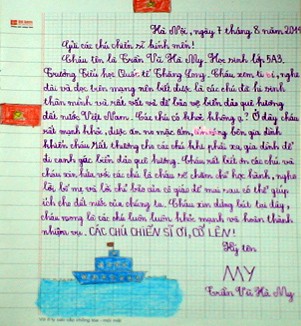 Hà Nội, ngày 7 tháng 8 năm 2014
Gửi các chú chiến sĩ kính mến!
Cháu tên là Trần Vũ Hà My. Học sinh lớp 5A3,
Trường Tiểu học Quốc tế Thăng Long. Cháu xem ti vi, nghe
đài và đọc trên mạng nên biết được là các chú đã hi sinh
thân mình và rất vất vả để bảo vệ biển đảo quê hương
đất nước Việt Nam. Các chú có khoẻ không ạ? Ở đây cháu
rất mạnh khoẻ, được ăn no mặc ấm, bên gia đình
khiến cháu rất thương các chú khi phải xa gia đình để
đi canh gác biển đảo quê hương. Cháu rất biết ơn các chú và
cháu xin hứa với các chú là cháu sẽ chăm chỉ học hành, nghe
lời bố mẹ và lời chỉ bảo của cô giáo để mai sau có thể giúp
ích cho đất nước của chúng ta. Cháu xin dừng bút tại đây,
cháu mong là các chú luôn luôn khoẻ mạnh và hoàn thành
nhiệm vụ. CÁC CHÚ CHIẾN SĨ ƠI, CỐ LÊN!
Ký tên
MY
Trần Vũ Hà My